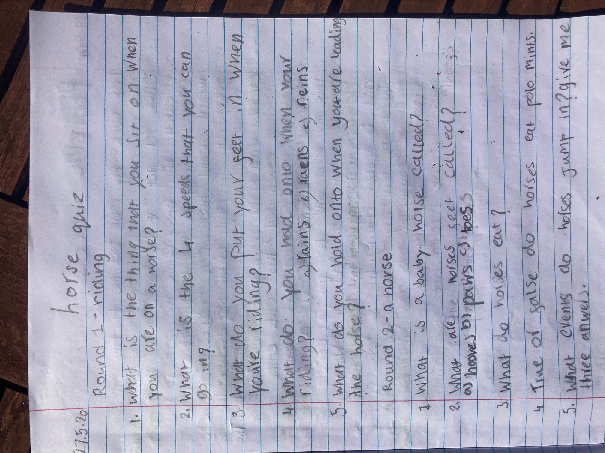 17.5.20
horse quiz
Round 1 - riding
1. What is the thing that you sit on when
you are on a horse?
2. What is the 4 speeds that you can
go in?
3. What do you put your feet in when
you're riding?
4. What do you hold onto when your
riding? a) rains b) raens c) reins
5. What do you hold onto when you are leading
the horse?
Round 2 - a horse
1. What is a baby horse called?
2. What are horses feet called?
a) hooves b) paws c) toes
3. What do horses eat?
4. True or false do horses eat polo mints.
5. What events do horses jump in? give me
three answers.